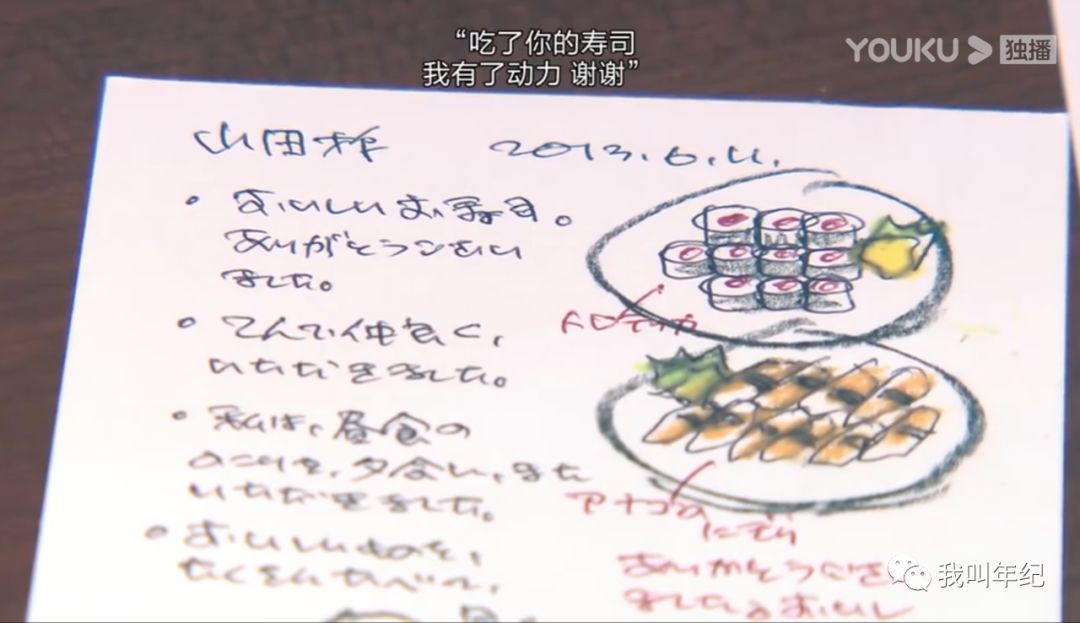 “吃了你的寿司
我有了动力 谢谢”
YOUKU 独播
山田 2013.6.11.
• おいしいお寿司。
ありがとうござい
ました。
• てんで仲良く、
いただきました。
• 私は、昼食の
のこりを、夕食に、また
いただきました。
• おいしいものを、
たくさんたべて、
トロ
アナゴの
にぎり
ありがとうござい
ました。おいし
我叫年纪